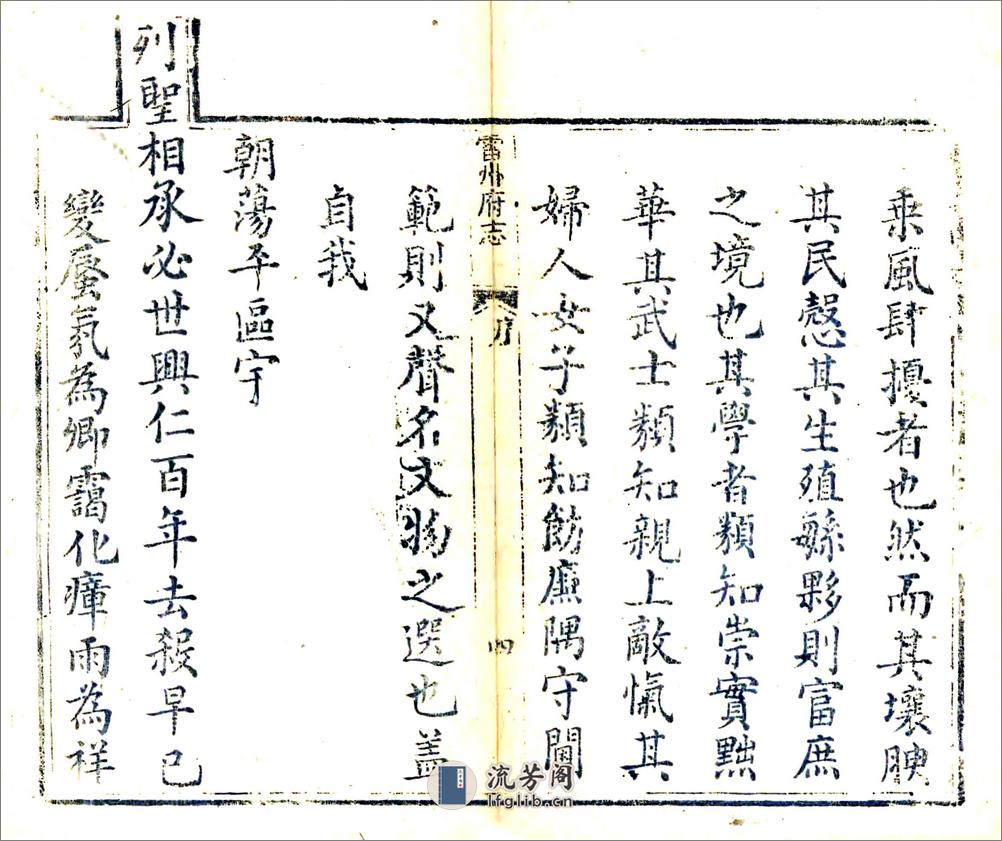 乗風肆擾者也然而其壤腴
其民慤其生殖緐夥則富庶
之境也其學者類知崇實黜
華其武士類知親上敵愾其
婦人女子類知飭廉隅守閫
雷州府志
序
四
範則又聲名文物之選也蓋
自我
朝蕩平區宇
列聖相承必世興仁百年去殺早已
變蜃氣為卿靄化瘴雨為祥
流芳阁
lfglib.cn